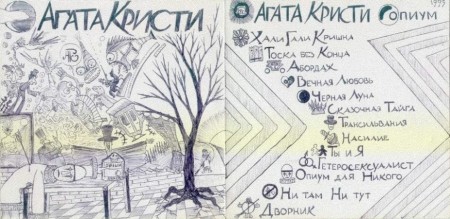 Агата Кристи
Агата Кристи Опиум
1994
Хали Гали Кришна
Тоска без Конца
Абордаж
Вечная Любовь
Черная Луна
Сказочная Тайга
Трансильвания
Насилие
Ты и Я
Гетеросексуалист
Опиум для Никого
Ни там Ни тут
Дворник